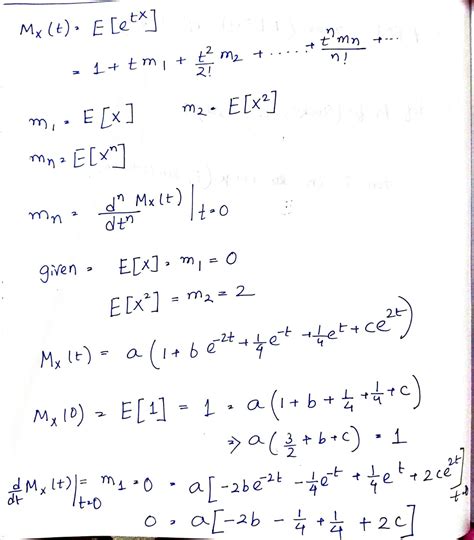 Mₓ(t) = E[e^{tX}]
= 1 + t m₁ + t²/2! m₂ + ..... + tⁿmₙ/n! + ...
m₁ = E[X]    m₂ = E[X²]
mₙ = E[Xⁿ]
mₙ = dⁿ/dtⁿ Mₓ(t) |t=0
given = E[X] = m₁ = 0
E[X²] = m₂ = 2
Mₓ(t) = a(1 + b e^{-2t} + 1/4 e^{-t} + 1/4 e^{t} + c e^{2t})
Mₓ(0) = E[1] = 1 = a(1 + b + 1/4 + 1/4 + c)
⇒ a(3/2 + b + c) = 1
d/dt Mₓ(t)|t=0 = m₁ = 0 = a[-2be^{-2t} - 1/4 e^{-t} + 1/4 e^{t} + 2ce^{2t}]t=0
0 = a[-2b - 1/4 + 1/4 + 2c]